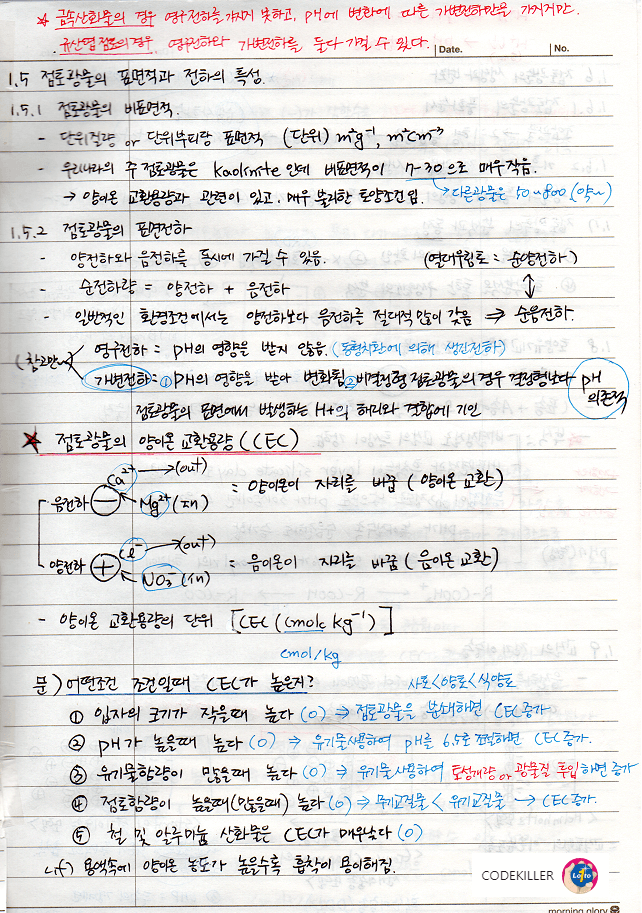 * 금속산화물의 경우 영구전하를 갖지 못하고, pH에 변화에 따른 가변전하만을 가지지만,
규산염 점토의 경우, 영구전하와 가변전하를 둘다 가질 수 있다.
Date. No.
1.5 점토광물의 표면적과 전하의 특성.
1.5.1 점토광물의 비표면적.
- 단위질량 or 단위부피당 표면적 (단위) m²g⁻¹, m²cm⁻³
- 우리나라의 주 점토광물은 kaolinite 인데 비표면적이 7-30으로 매우작음.
→ 양이온 교환용량과 관련이 있고, 매우 불리한 토양조건임. → 다른광물은 50~800 (약~)
1.5.2 점토광물의 표면전하
- 양전하와 음전하를 동시에 가질 수 있음. (열대우림토 = 순양전하)
- 순전하량 = 양전하 + 음전하 ↕
- 일반적인 환경조건에서는 양전하보다 음전하를 절대적 많이 갖음 ⇒ 순음전하.
(참고만~) 영구전하 = pH의 영향을 받지 않음. (동형치환에 의해 생긴전하)
가변전하 = ① pH의 영향을 받아 변화됨, ② 비결정형 점토광물의 경우 결정형보다 pH 의존적
점토광물의 표면에서 발생하는 H+의 해리와 결합에 기인
★ 점토광물의 양이온 교환용량 (CEC)
Ca²⁺ → (out)
음전하 − Mg²⁺ (in) = 양이온이 자리를 바꿈 (양이온 교환)
Cl⁻ → (out)
양전하 + NO₃⁻ (in) = 음이온이 자리를 바꿈 (음이온 교환)
- 양이온 교환용량의 단위 [CEC (cmolc kg⁻¹)]
cmol/kg
문) 어떤조건 조건일때 CEC가 높은지? 사토<양토<식양토
① 입자의 크기가 작을때 높다 (O) ⇒ 점토광물을 분쇄하면 CEC증가
② pH가 높을때 높다 (O) ⇒ 유기물사용하여 pH를 6.5로 조절하면 CEC증가.
③ 유기물함량이 많을때 높다 (O) ⇒ 유기물사용하여 토성개량 or 광물질 투입하면 증가
④ 점토함량이 높을때(많을때) 높다 (O) ⇒ 무기교질물 < 유기교질물 → CEC증가.
⑤ 철 및 알루미늄 산화물은 CEC가 매우낮다 (O)
나) 용액속에 양이온 농도가 높을수록 흡착이 용이해짐.
CODEKILLER Lotto
morning glory